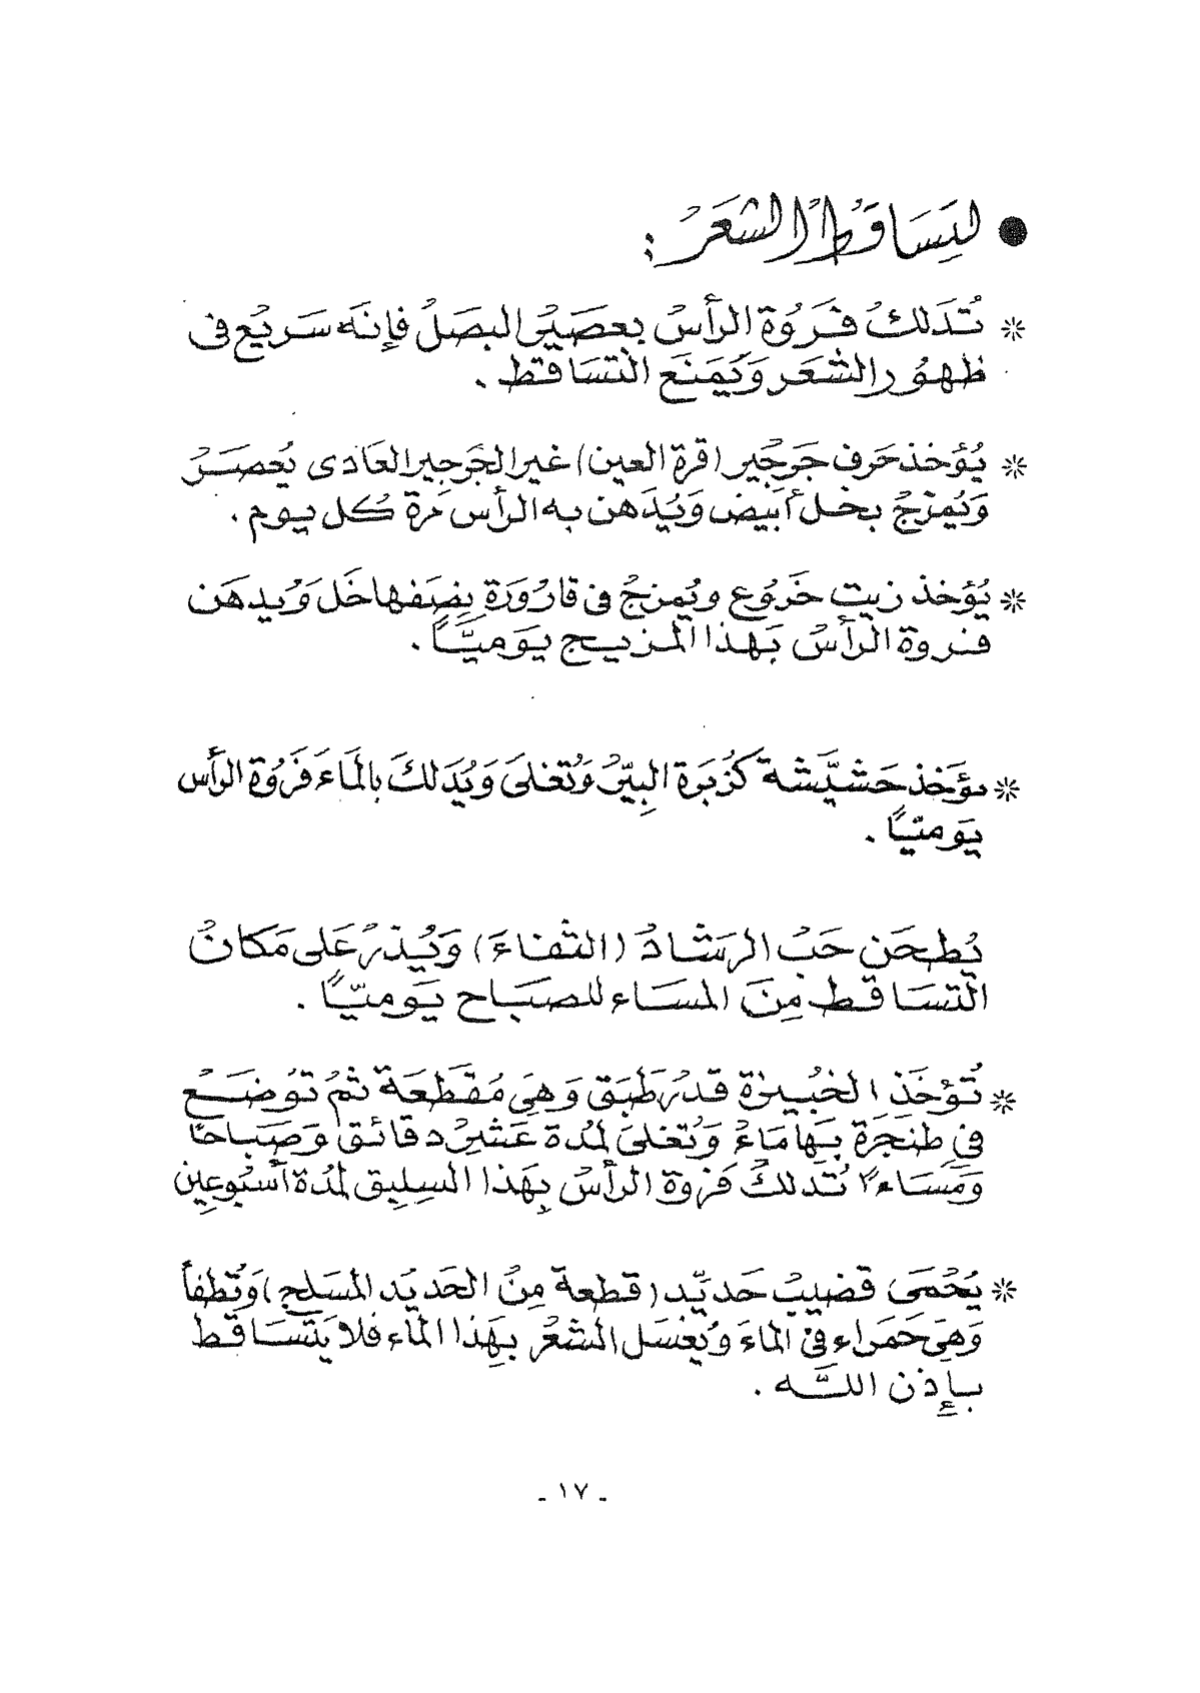 ● لتساقط الشعر :
* تُدَلكُ فَروُة الرأسُ بعصَيرُ البصَلُ فإنَه سَريُع فى
ظهوُر الشعَر وَيَمنَع التسَاقط .
* يُؤخذ حَرف جَرجُير (قرة العين) غير الجَرجير العَادى يُعصَرُ
وَيُمزجُ بخل أبَيض وَيُدَهن به الرأس مَرة كُل يوم .
* يُؤخذ زيت خَروُع ويُمزجُ فى قارُورَةِ بِنصَفها خَل وَيُدهَن
فروة الرأسُ بَهذا المزيج يوَميَّاً .
* يؤَخذ حَشيَّشة كَزُبَرة البِيّرُ وَتُغلىَ وَيُدَلكَ بالماَء فَروُة الرأس
يَوميّاً .
يُطحَن حَبُ الرشَادُ (الثفاءَ) وَيُذرُ عَلى مَكانُ
التسَاقط مِنَ المسَاء للصبَاح يوَميّاً .
* تُؤخَذِ الخبُيزة قدرُ طَبَق وَهىَ مُقَطعَة ثمُ توُضَع
فى طنجَرة بِهَا مَاءُ وَتُغلىَ لمُدة عَشرُ دقائق وَصَبَاحاً
وَمَسَاءً تُدَلكُ فَروة الرأسُ بِهَذا السِليق لمُدة أسبُوعِين
* يَحُمىَ قضيبُ حَديّد (قطعة مِنُ الحَديَد المسَلح) وَتُطفأ
وَهىَ حَمَراء فى الماءَ وَيُغسَل الشعرُ بِهَذا الماء فَلا يَتسَاقط
بإذن اللَّه .
- ١٧ -